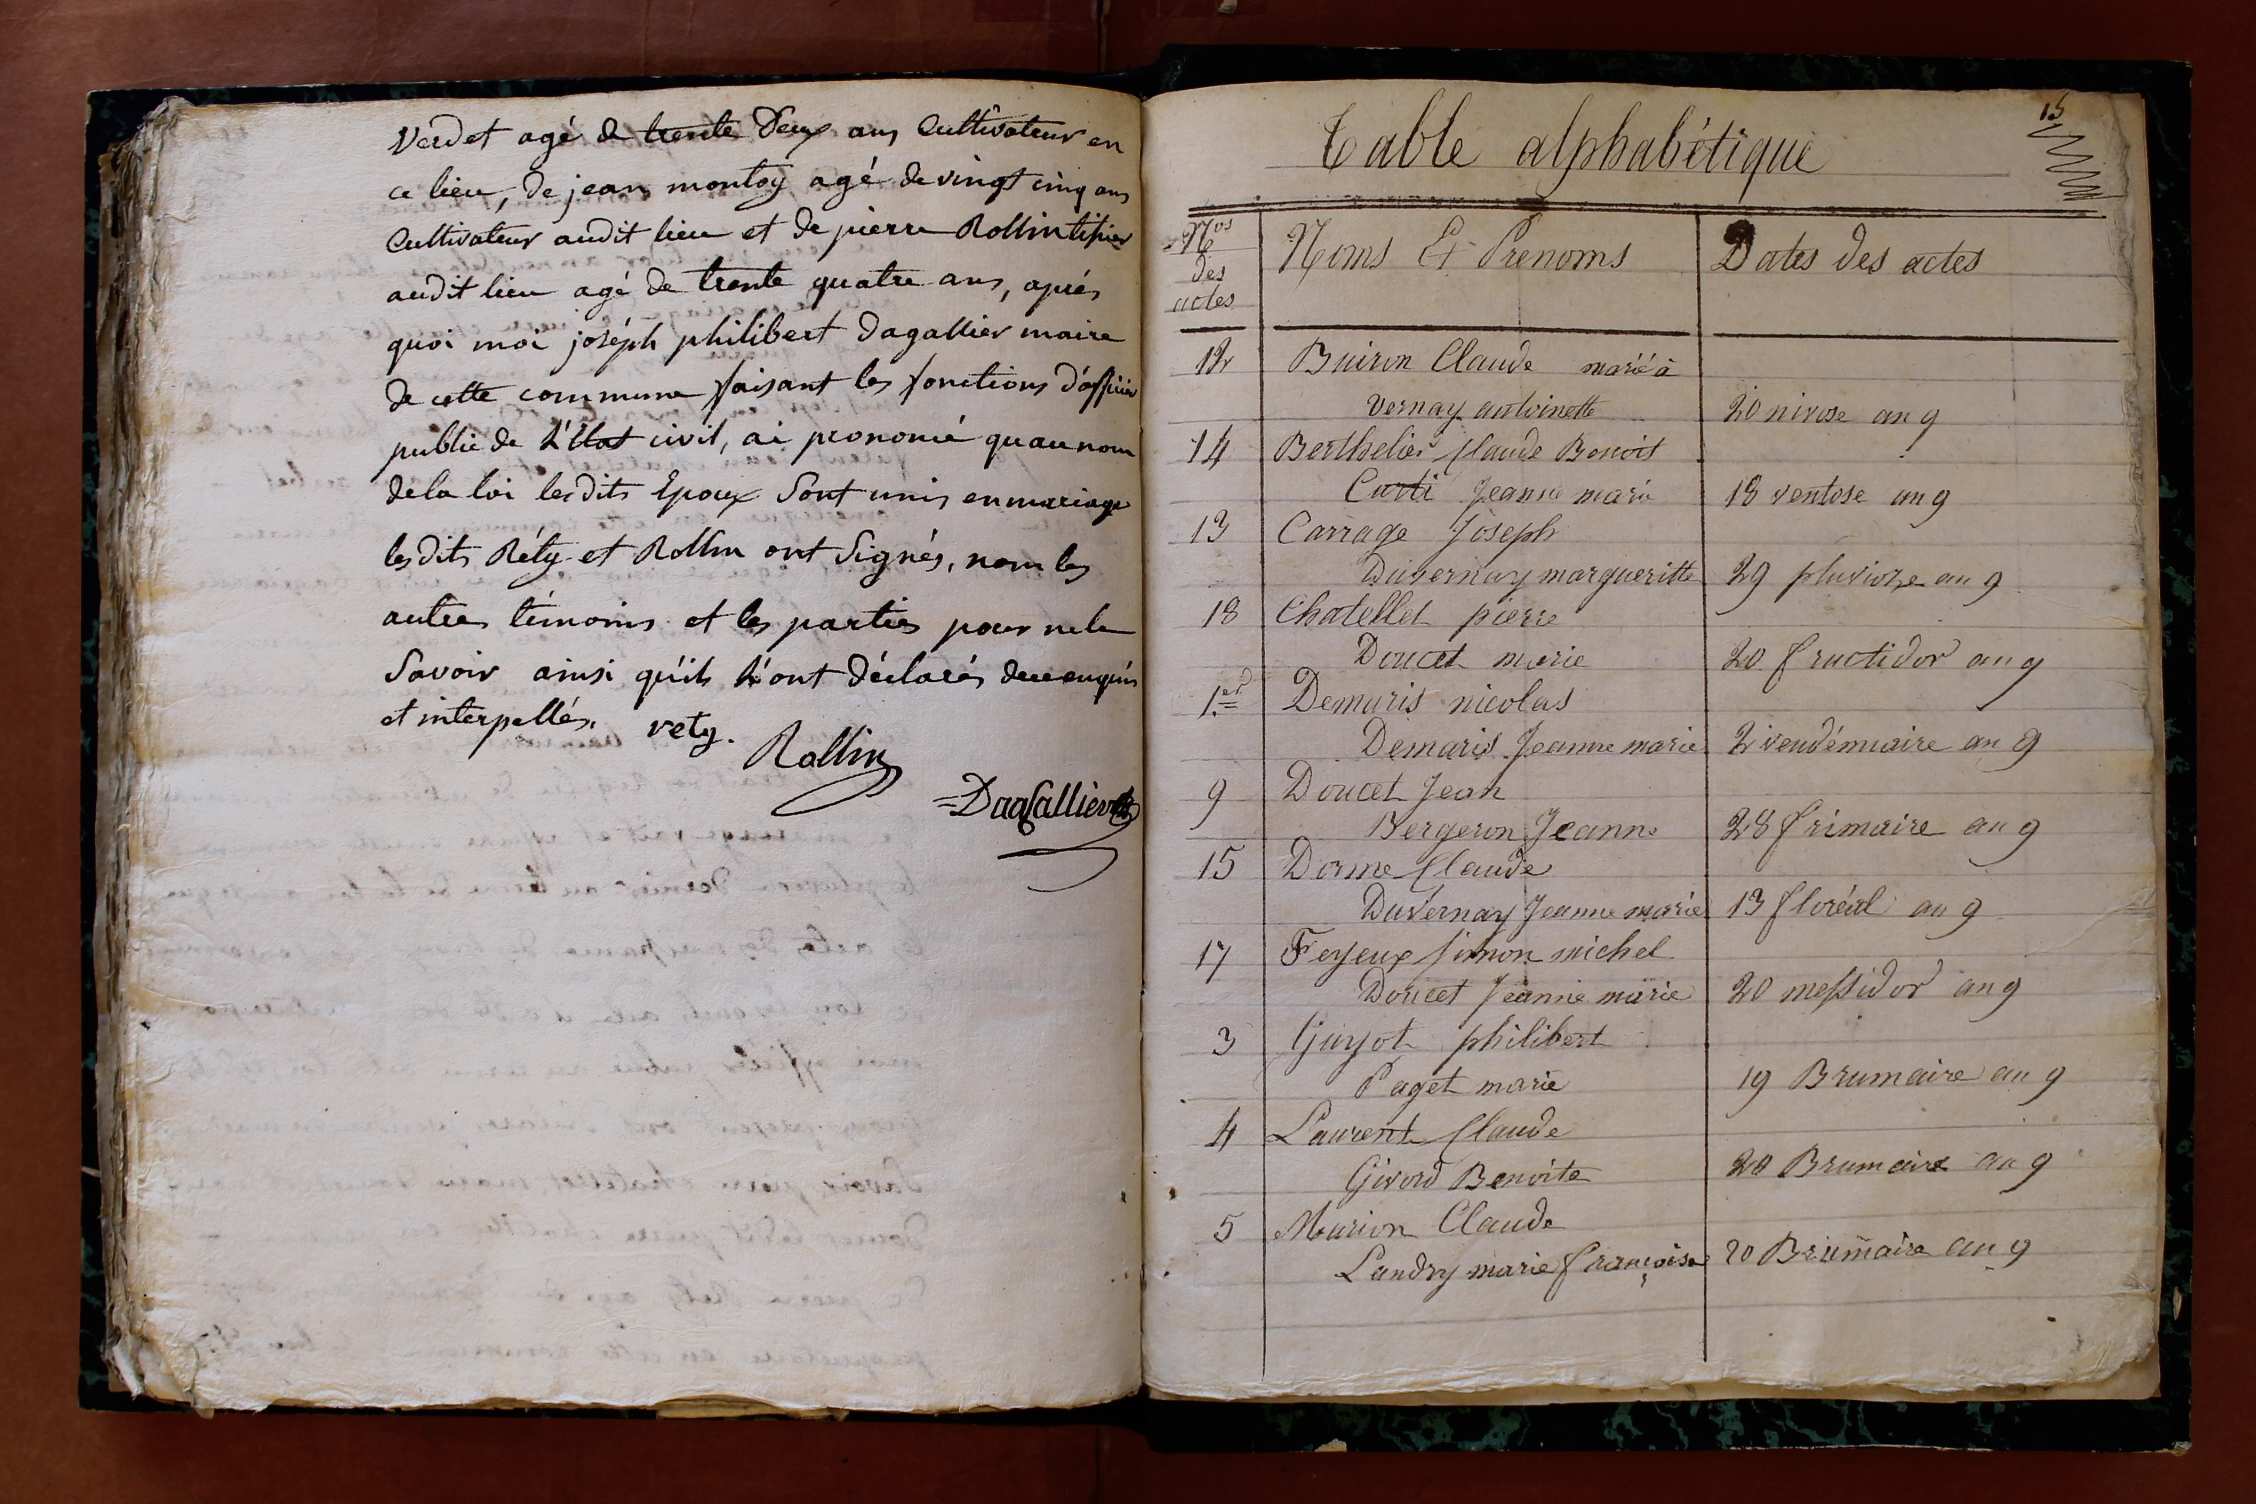 Verdet agé de trente Deux ans Cultivateur en
ce lieu, de jean montoy agé de vingt cinq ans
Cultivateur audit lieu et de pierre Rollin tipier
audit lieu agé de trente quatre ans, aprés
quoi moi joséph philibert Dagallier maire
de cette commune faisant les fonctions d'officier
public de L'état civil, ai prononcé quau nom
de la loi lesdits Epoux Sont unis en mariage
lesdits Réty et Rollin ont Signés, nom les
autres témoins et les parties pour ne le
Savoir ainsi qu'ils L'ont déclarés de ce enquis
et interpellés.
rety.
Rollin
=Dagallier
15
Table alphabétique
Nos des actes
Noms Et Prenoms
Dates des actes
12 Buiron Claude marié à
Vernay antoinette 20 nivose an 9
14 Berthelier Claude Benoit
Curti Jeanne marie 18 ventose an 9
13 Carrage Joseph
Duvernay margueritte 29 pluvioze an 9
18 Chatellet pierre
Doucet marie 20 fructidor an 9
1.er Demaris nicolas
Demaris Jeanne marie 2 vendémiaire an 9
9 Doucet Jean
Bergeron Jeanne 28 frimaire an 9
15 Dorme Claude
Duvernay Jeanne marie 13 floréal an 9
17 Feyeux Simon michel
Doucet Jeanne marie 20 messidor an 9
3 Guyot philibert
Paget marie 19 Brumaire an 9
4 Laurent Claude
Givord Benoite 20 Brumaire an 9
5 Marion Claude
Landry marie françoise 20 Brumaire an 9